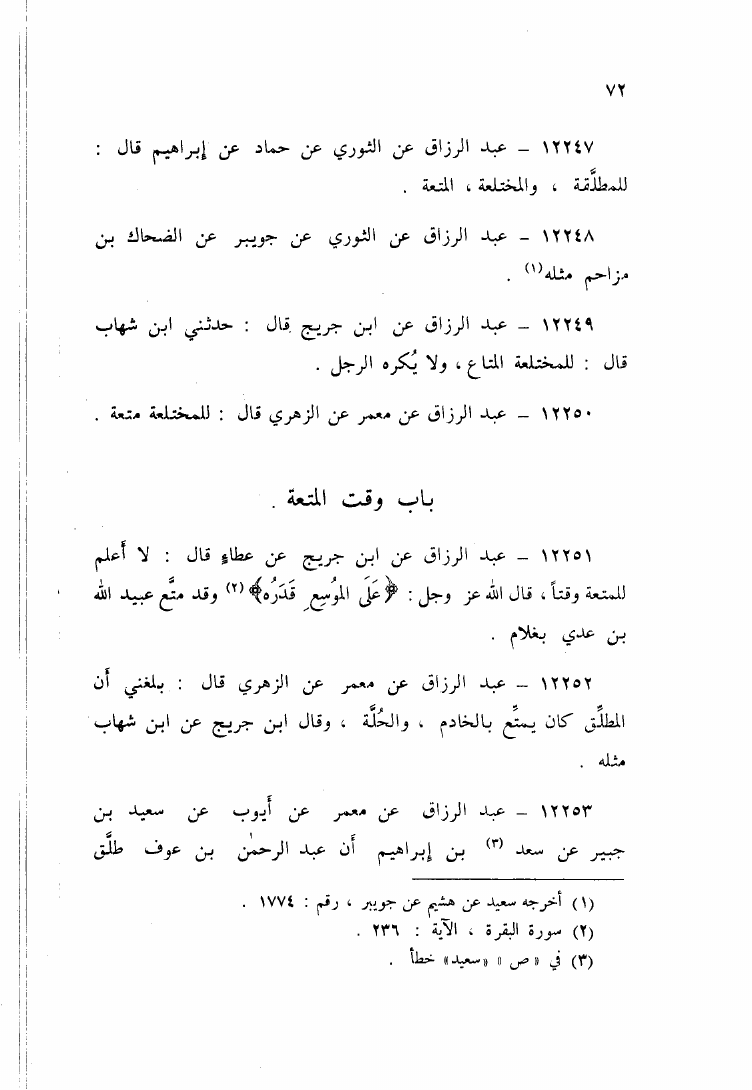 ٧٢
١٢٢٤٧ – عبد الرزاق عن الثوري عن حماد عن إبراهيم قال :
للمطلَّقة ، والمختلعة ، المتعة .
١٢٢٤٨ – عبد الرزاق عن الثوري عن جويبر عن الضحاك بن
مزاحم مثله(١) .
١٢٢٤٩ – عبد الرزاق عن ابن جريج قال : حدثني ابن شهاب
قال : للمختلعة المتاع ، ولا يُكره الرجل .
١٢٢٥٠ – عبد الرزاق عن معمر عن الزهري قال : للمختلعة متعة .
باب وقت المتعة .
١٢٢٥١ – عبد الرزاق عن ابن جريج عن عطاءٍ قال : لا أعلم
للمتعة وقتاً ، قال الله عز وجل : ﴿عَلَى المُوْسِعِ قَدَرُه﴾(٢) وقد متَّع عبيد الله
بن عدي بغلام .
١٢٢٥٢ – عبد الرزاق عن معمر عن الزهري قال : بلغني أن
المطلِّق كان يمتِّع بالخادم ، والحُلَّة ، وقال ابن جريج عن ابن شهاب
مثله .
١٢٢٥٣ – عبد الرزاق عن معمر عن أيوب عن سعيد بن
جبير عن سعد (٣) بن إبراهيم أن عبد الرحمٰن بن عوف طلَّق
(١) أخرجه سعيد عن هشيم عن جويبر ، رقم : ١٧٧٤ .
(٢) سورة البقرة ، الآية : ٢٣٦ .
(٣) في « ص » «سعيد» خطأ .